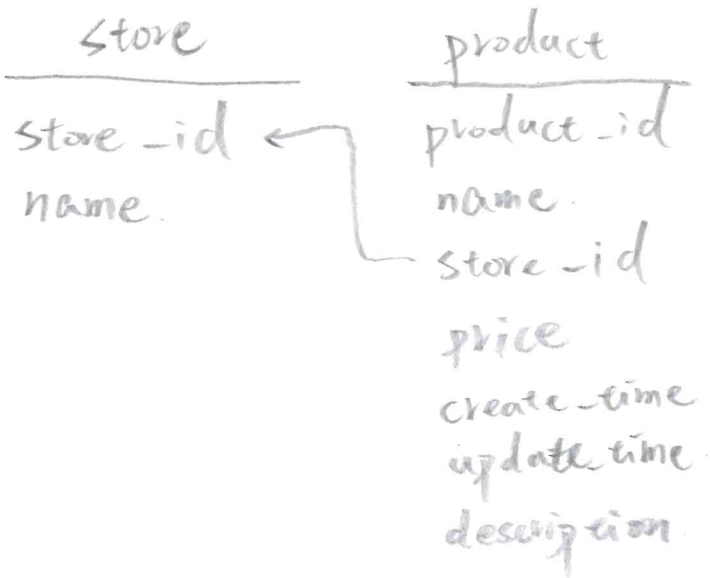 store
store_id
name.
product
product_id
name.
store_id
price
create_time
update_time
description.